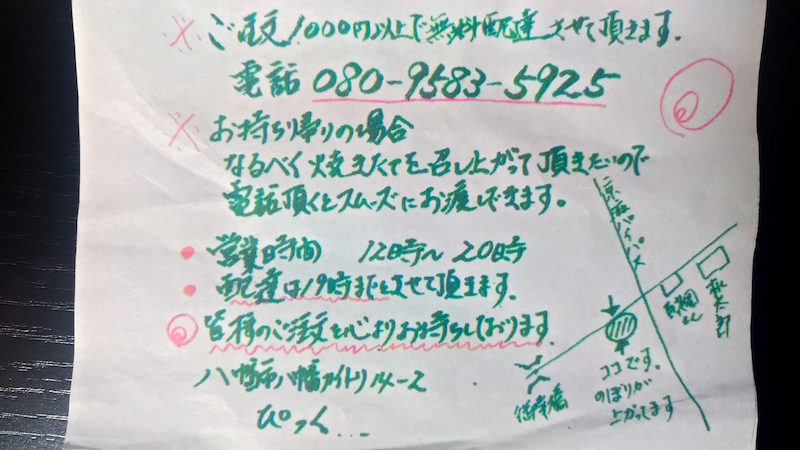 ※ ご注文1000円以上で無料配達させて頂きます。
電話 080-9583-5925
※ お持ち帰りの場合
なるべく焼きたてを召し上がって頂きたいので
電話頂くとスムーズにお渡しできます。
• 営業時間 12時〜20時
• 配達は19時までとさせて頂きます。
皆様のご注文を心よりお待ちしております。
八幡市八幡カイトリ14-2
ぴっく...
京滋バイパス
桃太郎
ココです。
のぼりが
上がってます